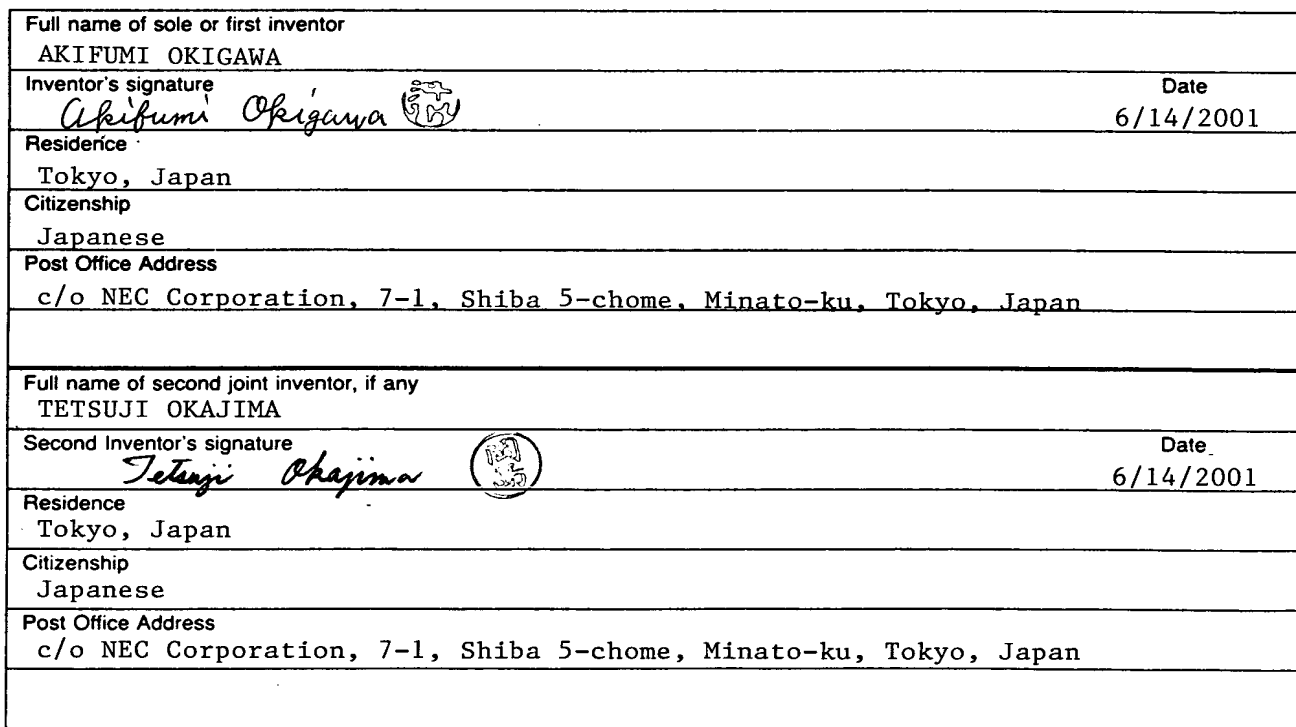 Full name of sole or first inventor
AKIFUMI OKIGAWA
Inventor's signature Date
Akifumi Okigawa 6/14/2001
Residence
Tokyo, Japan
Citizenship
Japanese
Post Office Address
c/o NEC Corporation, 7-1, Shiba 5-chome, Minato-ku, Tokyo, Japan
Full name of second joint inventor, if any
TETSUJI OKAJIMA
Second Inventor's signature Date
Tetsuji Okajima 岡島 6/14/2001
Residence
Tokyo, Japan
Citizenship
Japanese
Post Office Address
c/o NEC Corporation, 7-1, Shiba 5-chome, Minato-ku, Tokyo, Japan